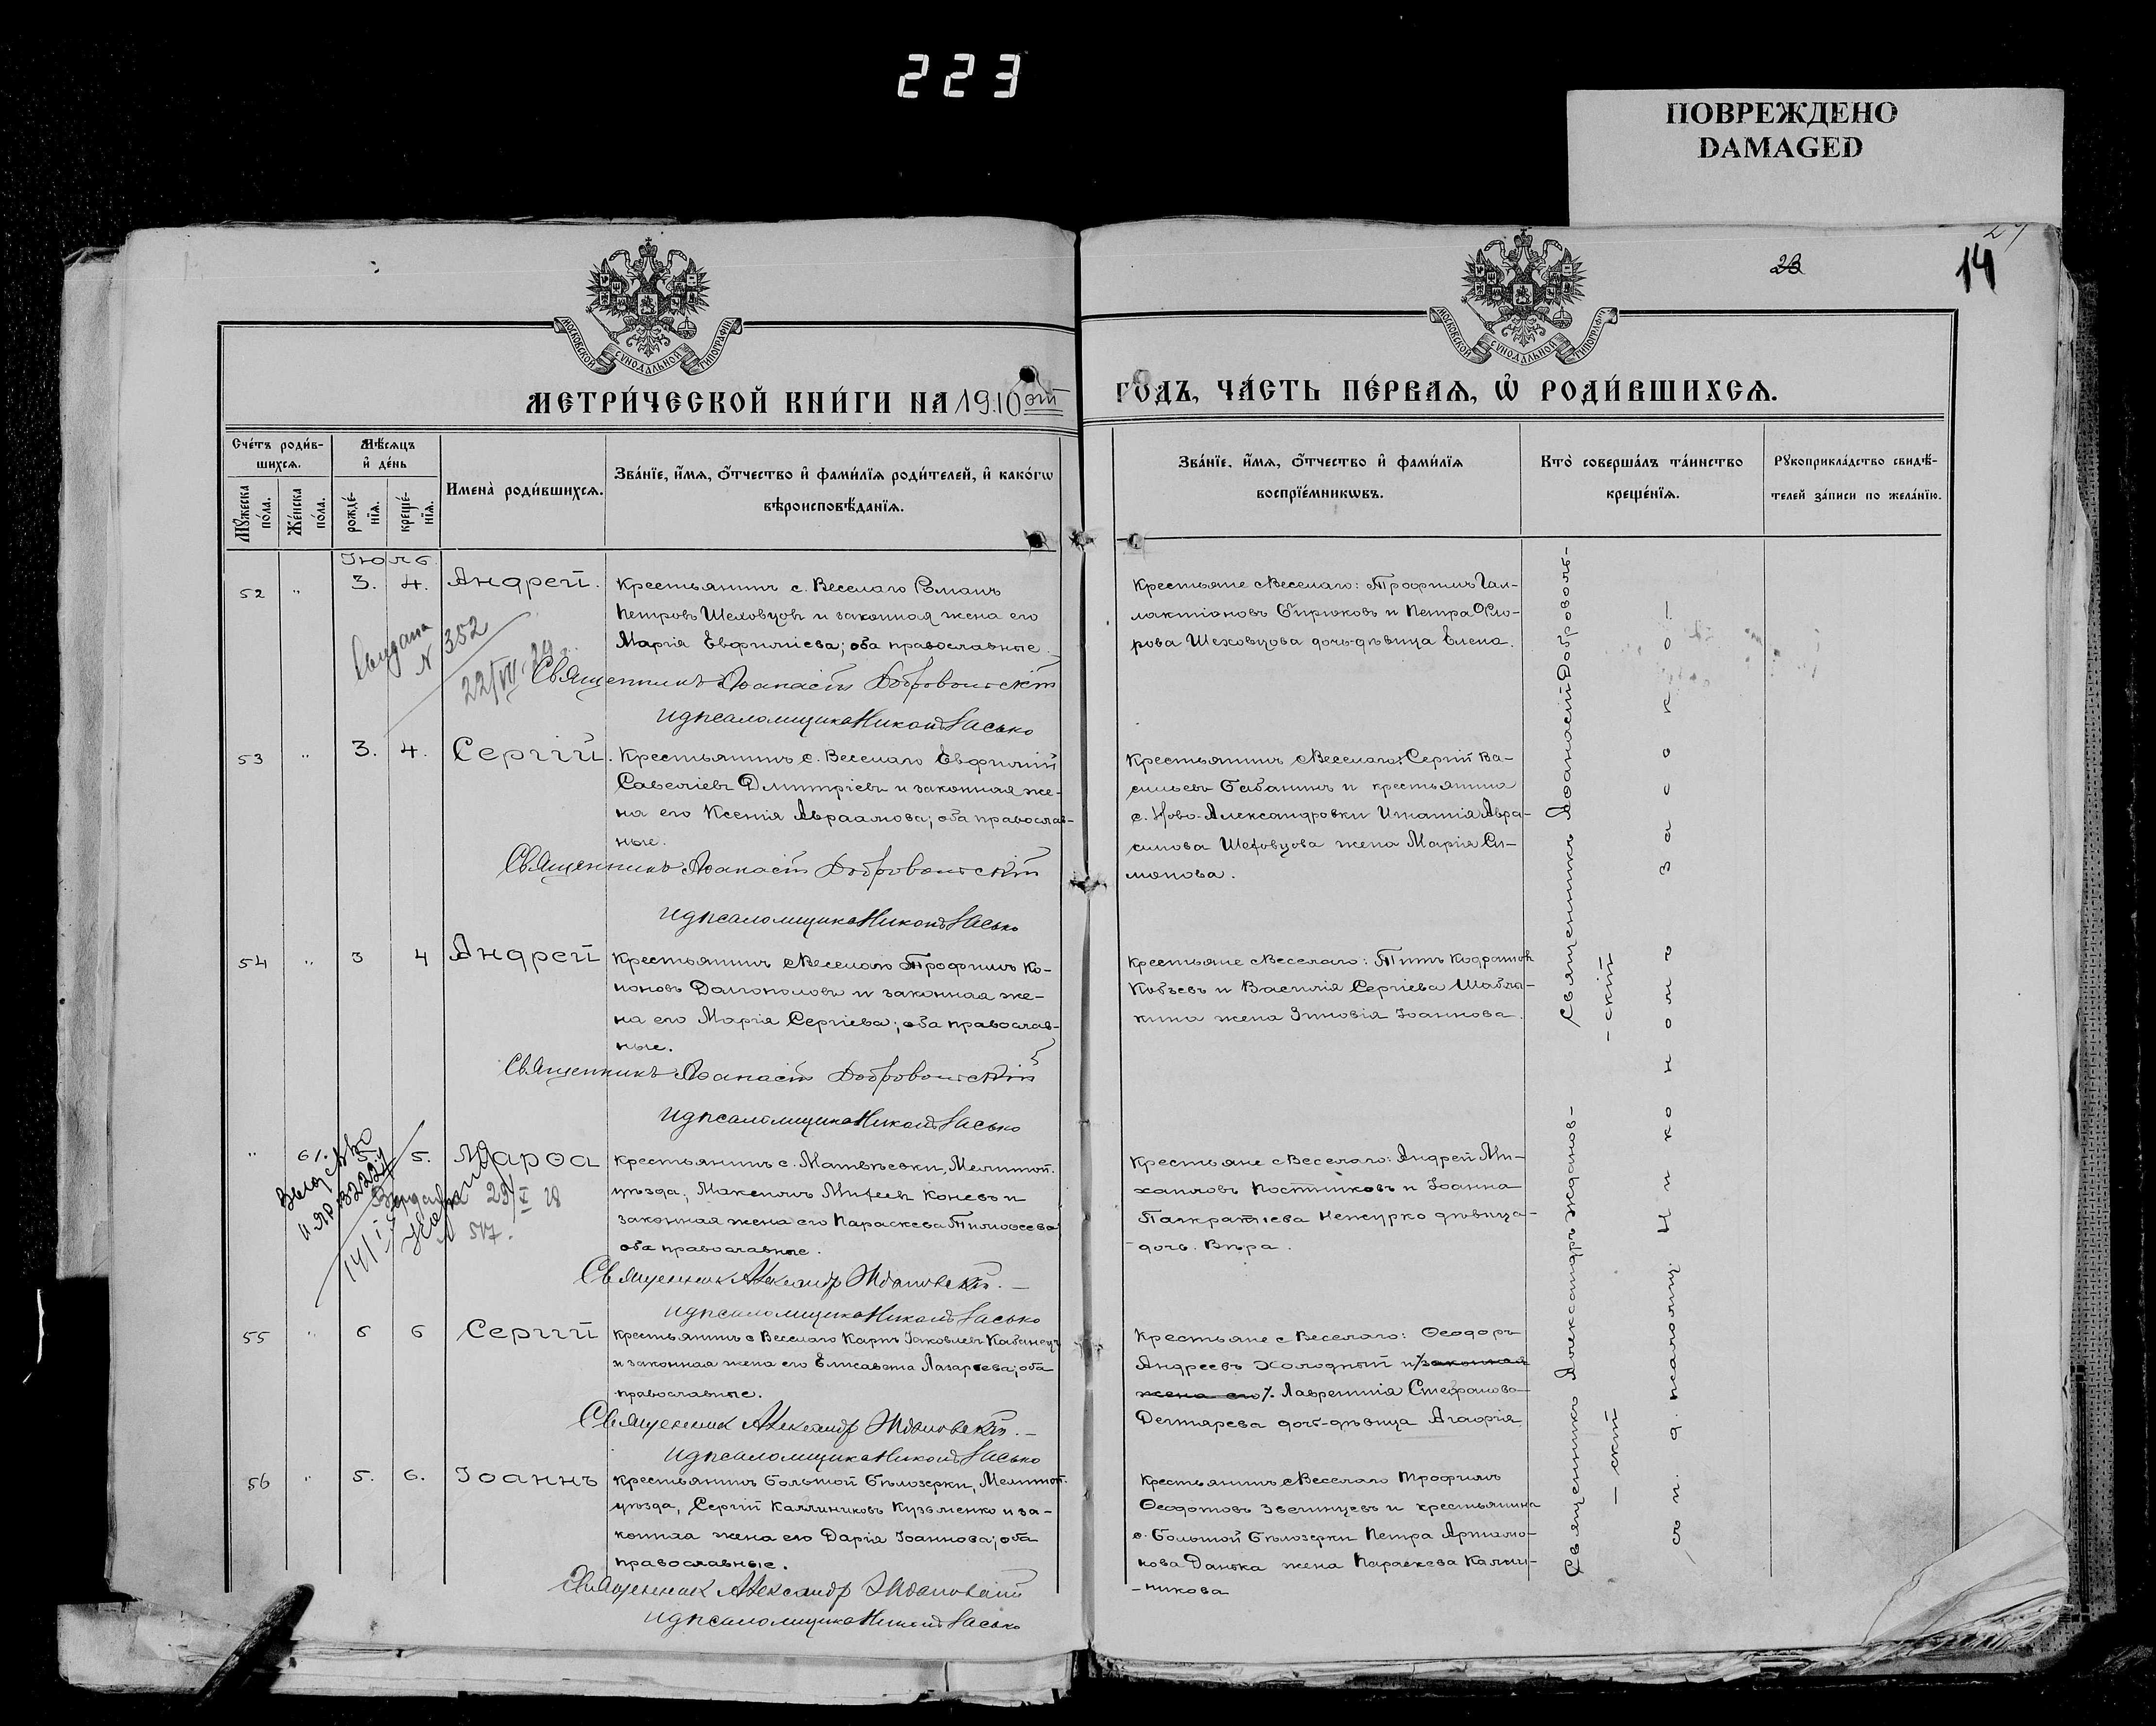 223
ПОВРЕЖДЕНО
DAMAGED
23
14
МОСКОВСКОЙ СѴНОДАЛЬНОЙ ТИПОГРАФІИ
МОСКОВСКОЙ СѴНОДАЛЬНОЙ ТИПОГРАФІИ
МЕТРИ́ЧЕСКОЙ КНИ́ГИ НА 1910 ый ГОДЪ, ЧА́СТЬ ПЕ́РВАЯ, Ѡ РОДИ́ВШИХСЯ.
Сче́тъ роди́в-
шихся.
Мѣ́сяцъ
и҆ де́нь
Мꙋ́жеска по́ла.
Же́нска по́ла.
рожде́-нїя.
креще́-нїя.
Имена̀ роди́вшихся.
Зва́нїе, и҆́мя, о҆́тчество и҆ фами́лїя роди́телей, и҆ како́гѡ
вѣроисповѣ́данїя.
Зва́нїе, и҆́мя, о҆́тчество и҆ фами́лїя
воспрїе́мникѡвъ.
Кто̀ соверша́лъ та́инство
креще́нїя.
Рꙋкоприкла́дство свидѣ́-
телей за́писи по жела́нїю.
Іюль
52 " 3. 4. Андрей.
Крестьянинъ с. Веселаго Романъ
Петровъ Шеховцовъ и законная жена его
Марія Евфиміева; оба православные.
Священникъ Аѳанасій Добровольскій
и д. псаломщика Никонъ Засько
Крестьяне с Веселаго: Трофимъ Гал-
лактіоновъ Бирюковъ и Петра Фло-
рова Шеховцова дочь-дѣвица Елена.
N 352
53 " 3. 4. Сергій.
Крестьянинъ с. Веселаго Евфимій
Савеліевъ Дмитріевъ и законная же-
на его Ксенія Авраамова; оба православ-
ные.
Священникъ Аѳанасій Добровольскій
и д. псаломщика Никонъ Засько
Крестьянинъ с Веселаго: Сергій Ва-
сильевъ Бабанинъ и крестьянина
с. Ново-Александровки Игнатія Авра-
симова Шеховцова жена Марія Си-
монова.
54 " 3 4 Андрей
Крестьянинъ с Веселаго Трофимъ Ко-
ноновъ Долгополовъ и законная же-
на его Марія Сергіева; оба православ-
ные.
Священникъ Аѳанасій Добровольскій
и д. псаломщика Никонъ Засько
Крестьяне с Веселаго: Титъ Кодратовъ
Кобзевъ и Василія Сергіева Шабль-
кина жена Зиновія Іоаннова.
" 61. 5. 5. Марѳа
Крестьянинъ с. Матвѣевки, Мелитоп.
уѣзда, Максимъ Михеевъ Коневъ и
законная жена его Параскева Тимоѳеева
оба православные.
Священник Александр Ждановскій.
и д. псаломщика Никонъ Засько
Крестьяне с Веселаго: Андрей Ми-
хаиловъ Постниковъ и Іоанна
Панкратіева Нежурко дѣвица-
-дочь. Вѣра.
517.
55 " 6 6 Сергій
Крестьянинъ с Веселаго Карпъ Іаковлевъ Кабанецъ
и законная жена его Елисавета Лазарева; оба
православные.
Священник Александр Ждановскій.
и д. псаломщика Никонъ Засько
Крестьяне с Веселаго: Ѳеодоръ
Андреевъ Холодный и/законная
жена его/. Лаврентія Стефанова
Дегтярева дочь-дѣвица Агаѳія
56 " 5. 6. Іоаннъ
Крестьянинъ Большой Бѣлозерки, Мелитоп.
уѣзда, Сергій Каллиниковъ Кузьменко и за-
конная жена его Дарія Іоаннова; оба
православные.
Священник Александр Ждановскій
и д. псаломщика Никонъ Засько
Крестьянинъ с Веселаго Трофимъ
Ѳеодотовъ Звегинцевъ и крестьянина
с. Большой Бѣлозерки Петра Артамо-
нова Данька жена Параскева Калли-
-никова
Священникъ Аѳанасій Доброволь-
-скій
Священникъ Александръ Ждановъ-
-скій
съ и. д. псаломщ. Никономъ Засокой—